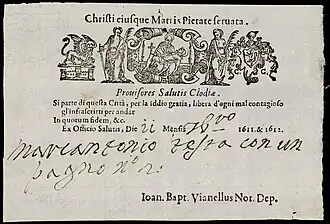 Christi eiusque Matris Pietate seruata.
Prouisores Salutis Clodiæ.
Si parte di questa Città, per la iddio gratia, libera d'ogni mal contagioso
gl'infrascritti per andar
In quorum fidem, &c.
Ex Officio Salutis, Die ii Mensis 1611. & 1612.
marcantonio testa con un
pagno n.º 2.
Ioan. Bapt. Vianellus Not. Dep.